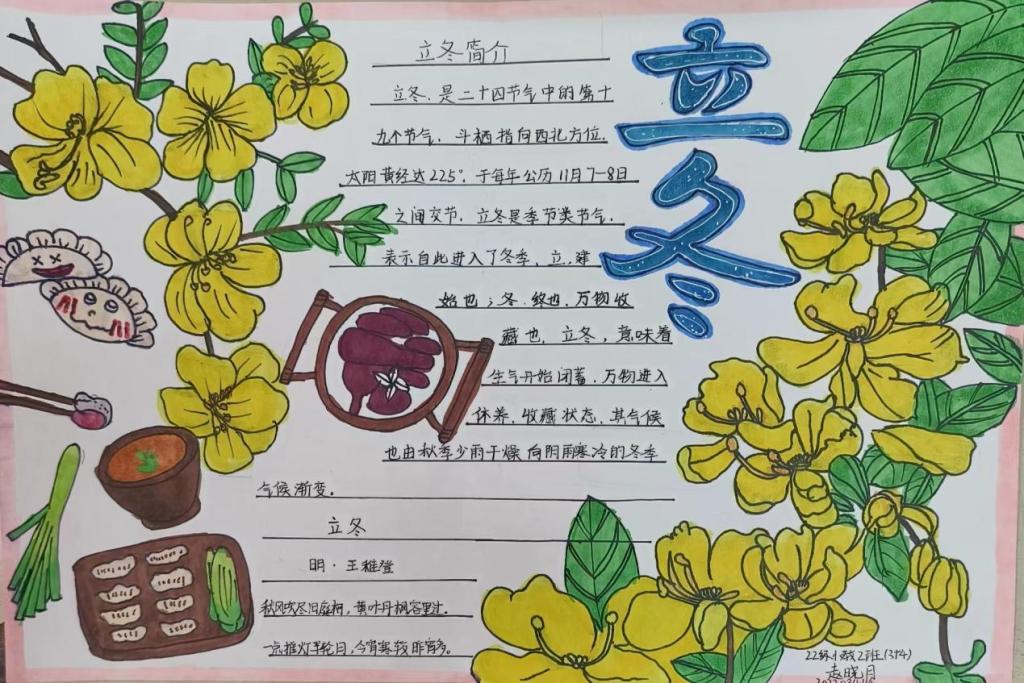 立冬
立冬简介
立冬，是二十四节气中的第十
九个节气，斗栖指向西北方位，
太阳黄经达225°，于每年公历11月7-8日
之间交节，立冬是季节类节气，
表示自此进入了冬季，立，建
始也；冬，终也，万物收
藏也，立冬，意味着
生气开始闭蓄，万物进入
休养，收藏状态，其气候
也由秋季少雨干燥向阴雨寒冷的冬季
气候渐变。
立冬
明·王稚登
秋风吹尽旧庭柯，黄叶丹枫客里过。
一点推灯半轮月，今宵寒较昨宵多。
赵晓月